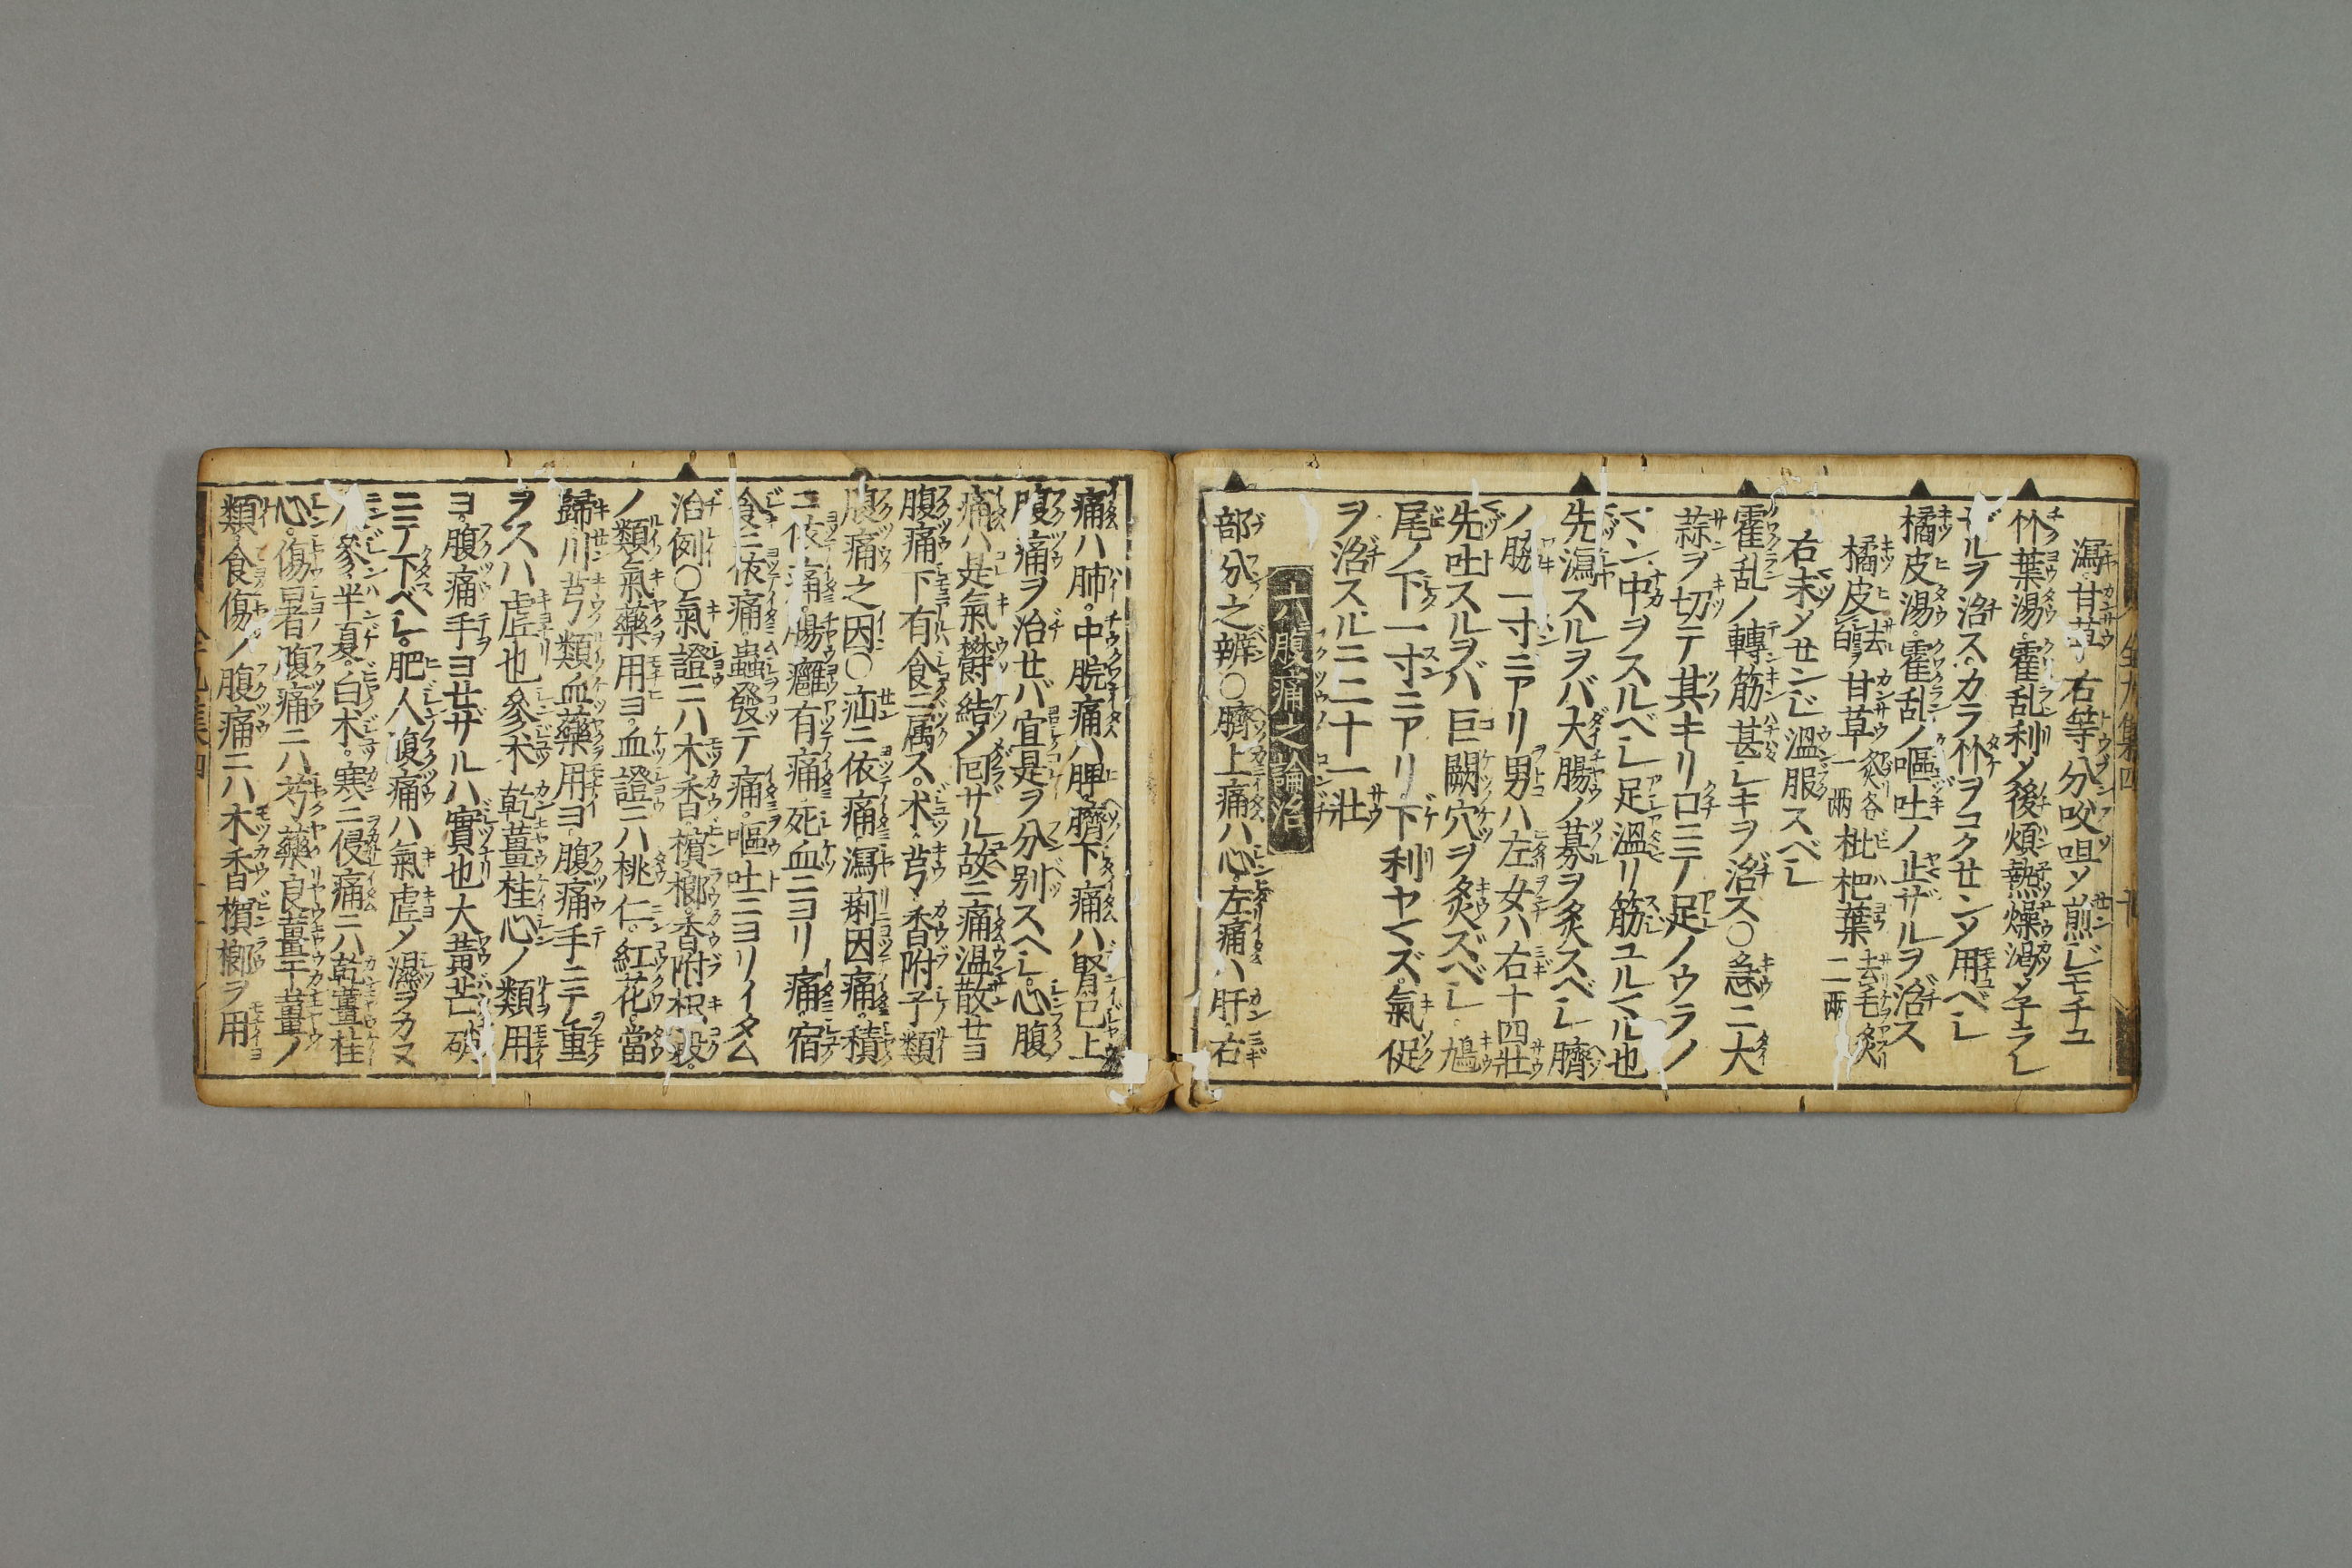 瀉甘草右等分㕮咀メ煎ジモチユ
竹葉湯霍乱利メ後煩熱燥渇メ子ラレ
ザルヲ治スカラ竹ヲコクセンメ用ベシ
橘皮湯霍乱ノ嘔吐ノ止ザルヲ治ス
橘皮去白 甘草一両 炙 枇杷葉二両 去毛炙
右末メセンジ温服スベシ
霍乱ノ轉筋甚シキヲ治ス○急ニ大
蒜ヲ切テ其キリ口ニテ足ノウラノ
マン中ヲスルベシ足温リ筋ユルマル也
先瀉スルヲバ大腸ノ募ヲ灸スベシ臍
ノ脇一寸ニアリ男ハ左女ハ右十四壮
先吐スルヲバ巨闕穴ヲ灸ズベシ鳩
尾ノ下一寸ニアリ下利ヤマズ氣促
ヲ治スルニ二十一壮
六腹痛之論治
部分之辨○臍上痛ハ心左痛ハ肝右
痛ハ肺。中脘痛ハ脾。臍下痛ハ腎已上
腹痛ヲ治セバ宜是ヲ分別スヘシ。心腹
痛ハ是氣欝結メ囘サル故ニ痛温散セヨ
腹痛下有食ニ属ス。朮芎香附子類
腹痛之因○疝ニ依痛瀉痢因痛。積
ニ依痛。腸癰有痛死血ニヨリ痛宿
食ニ依痛蟲發テ痛嘔吐ニヨリイタム
治例○氣證ニハ木香檳榔香附枳殼。
ノ類氣藥用ヨ血證ニハ桃仁紅花當
歸川芎類血藥用ヨ腹痛手ニテ重
ヲスハ虚也參朮乾薑桂心ノ類用
ヨ腹痛手ヨセザルハ實也大黄芒硝
ニテ下ベシ。肥人腹痛ハ氣虚メ濕ヲカヌ
人參半夏白朮寒ニ侵痛ニハ乾薑桂
心。傷暑腹痛ニハ芍藥良薑干薑ノ
類食傷ノ腹痛ニハ木香檳榔ヲ用